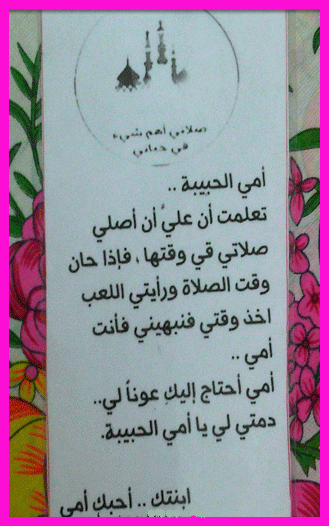 صلاتي أهم شيء
في حياتي
أمي الحبيبة ..
تعلمت أن عليَّ أن أصلي
صلاتي قي وقتها ، فإذا حان
وقت الصلاة ورأيتي اللعب
اخذ وقتي فنبهيني فأنت
أمي ..
أمي أحتاج إليكِ عوناً لي..
دمتي لي يا أمي الحبيبة.
ابنتك .. أحبك أمي